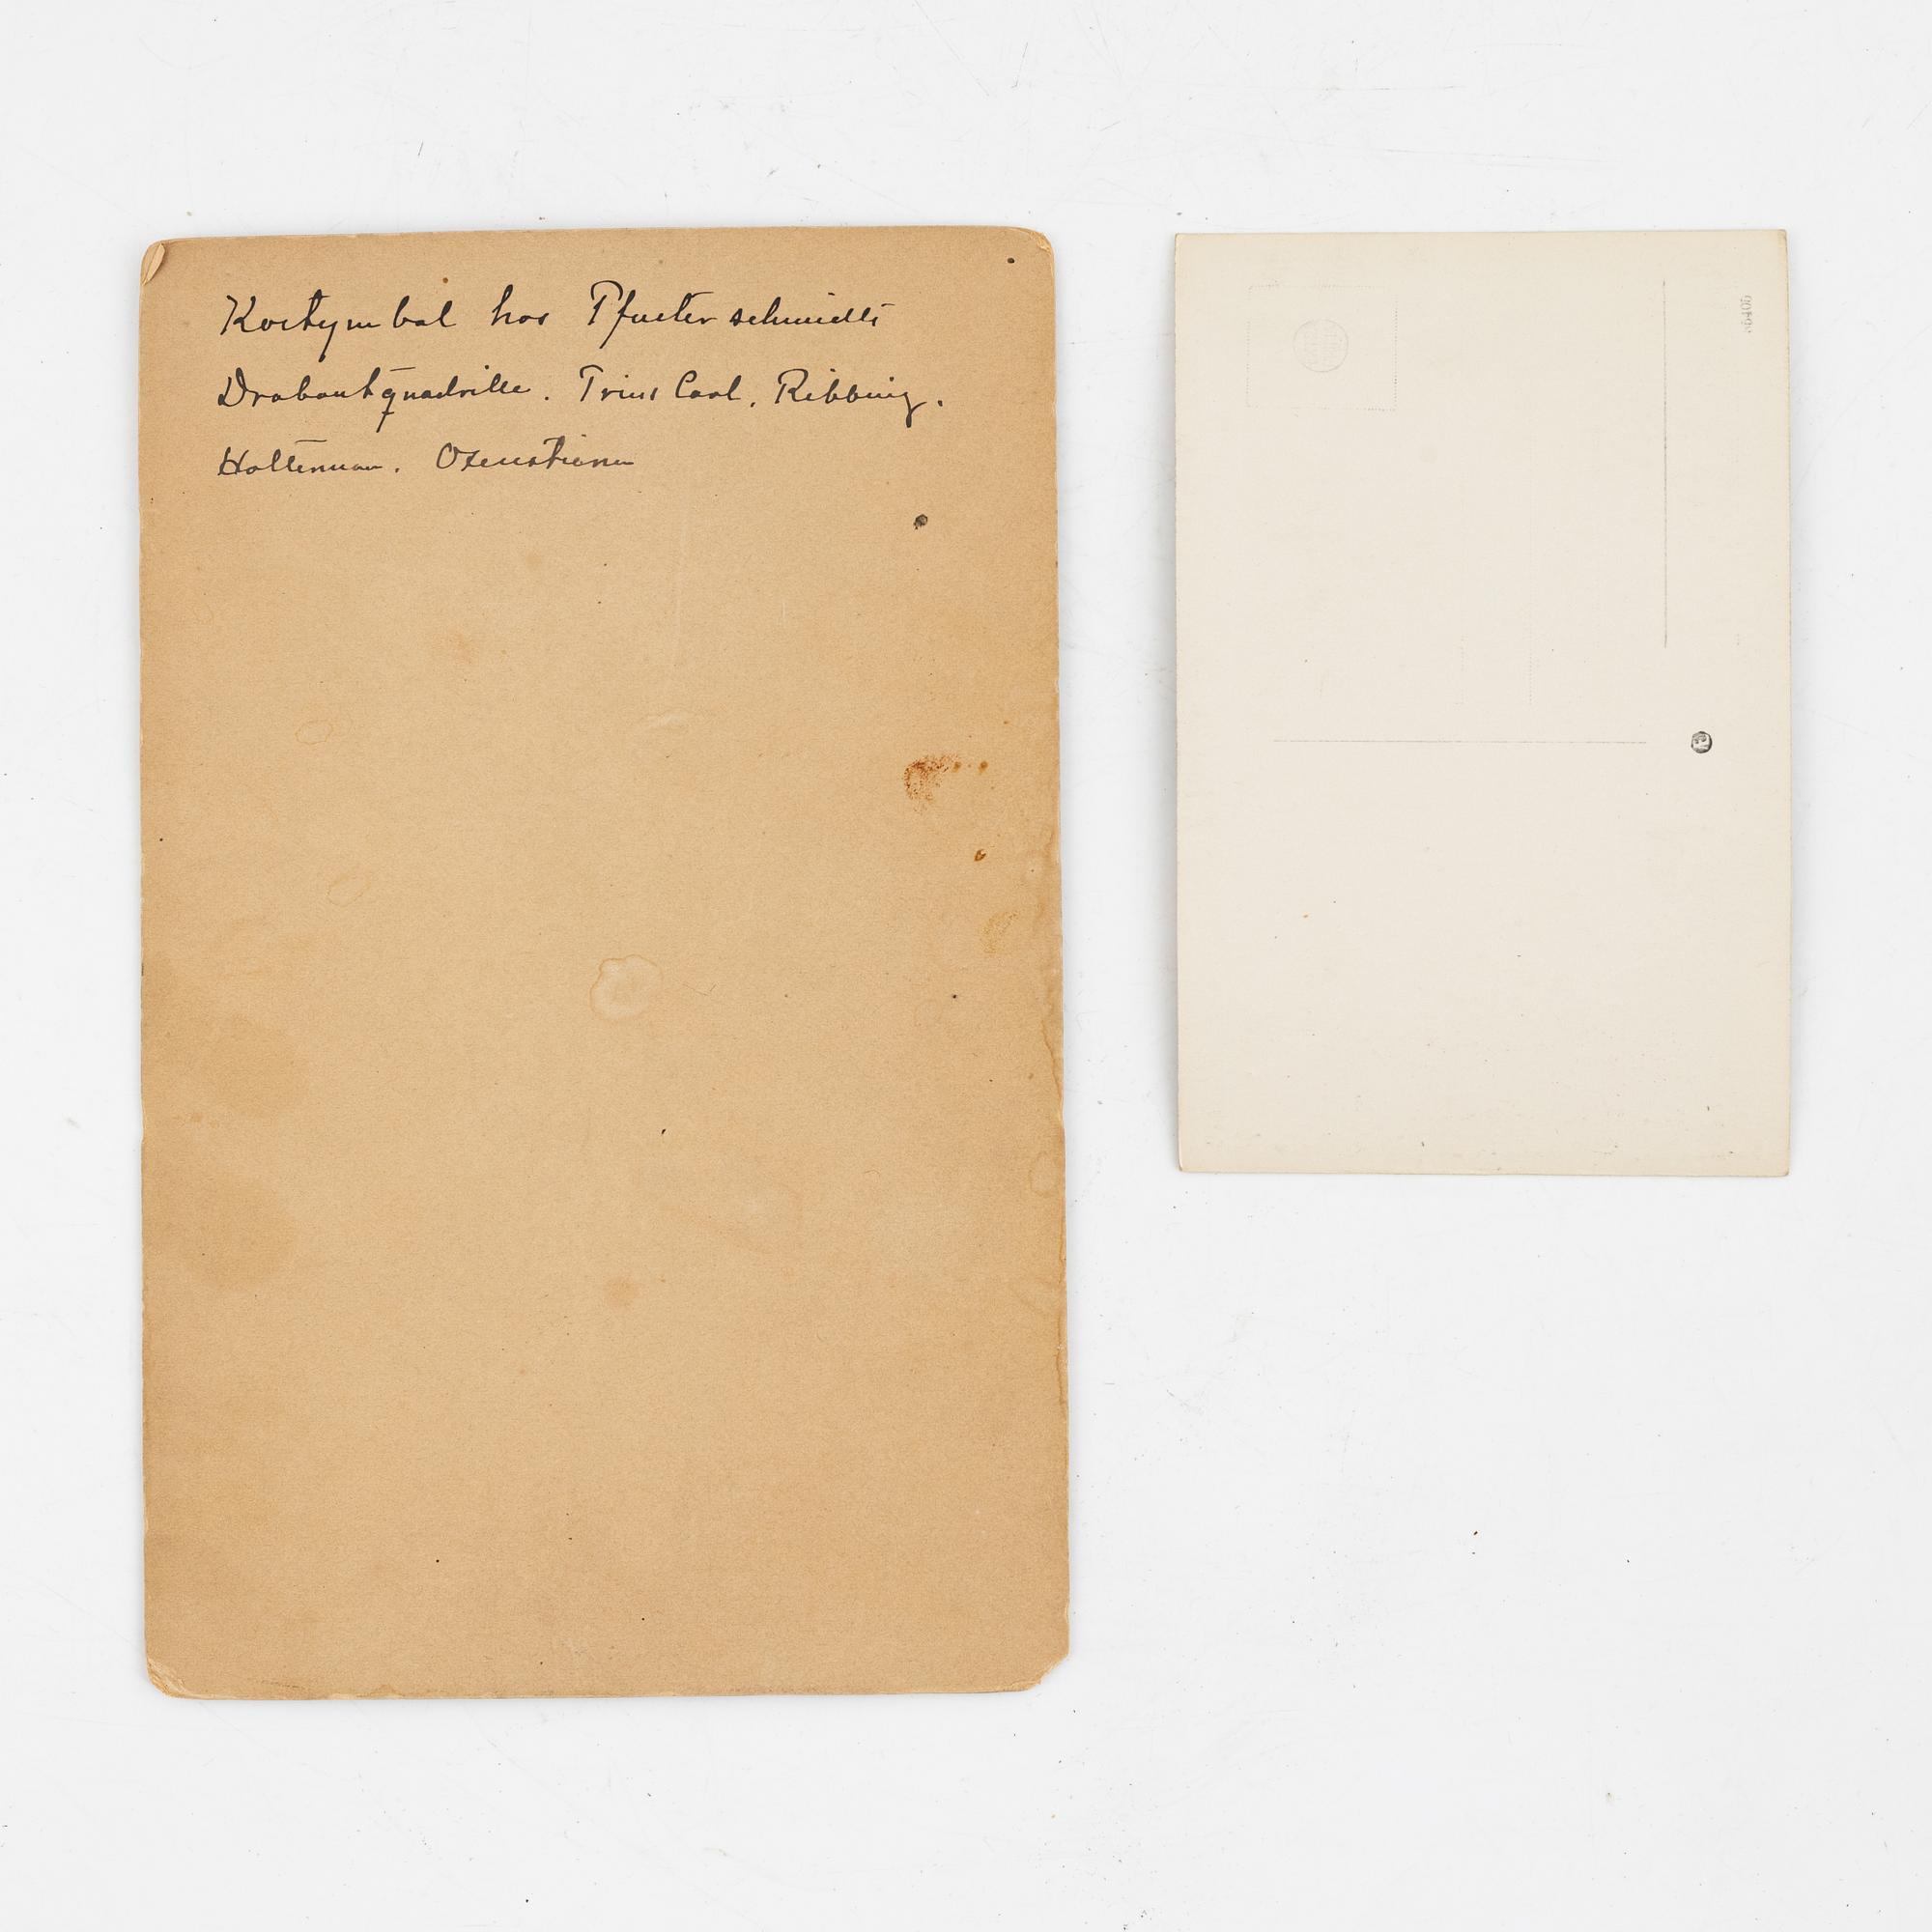 Kostymbal hos Pfueterschmidts
Drabantquadrille. Prins Carl. Ribbing.
Holterman. Oxenstierna